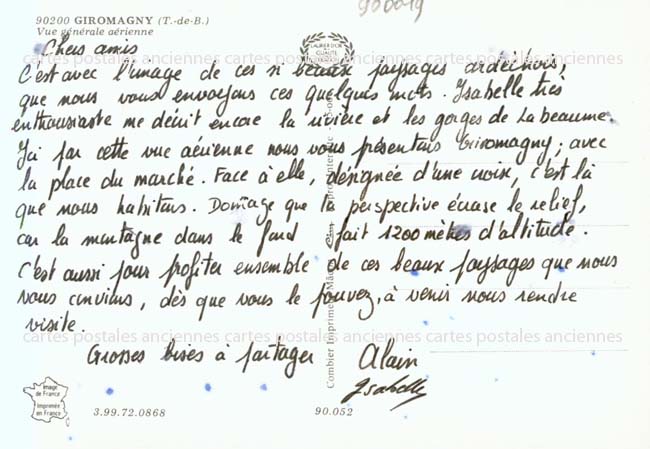 900019
90200 GIROMAGNY (T.-de-B.)
Vue générale aérienne
LAURIER D'OR
DE
QUALITÉ
Chers amis
C'est avec l'image de ces si beaux paysages ardéchois,
que nous vous envoyons ces quelques mots. Ysabelle très
enthousiaste me décrit encore la rivière et les gorges de la beaume.
Ici par cette vue aérienne nous vous présentons Giromagny; avec
la place du marché. Face à elle, désignée d'une croix, c'est là
que nous habitons. Domage que la perspective écrase le relief,
car la montagne dans le fond fait 1200 mètres d'altitude.
C'est aussi pour profiter ensemble de ces beaux paysages que nous
vous convions, dès que vous le pouvez, à venir nous rendre
visite.
Grosses bises à partager Alain
Ysabelle
cartes postales anciennes cartes postales anciennes cartes postales anciennes
cartes postales anciennes cartes postales anciennes cartes postales anciennes
cartes postales anciennes cartes postales anciennes cartes postales anciennes
Combier Imprimeur
Image
de France
Imprimée
en France
3.99.72.0868
90.052